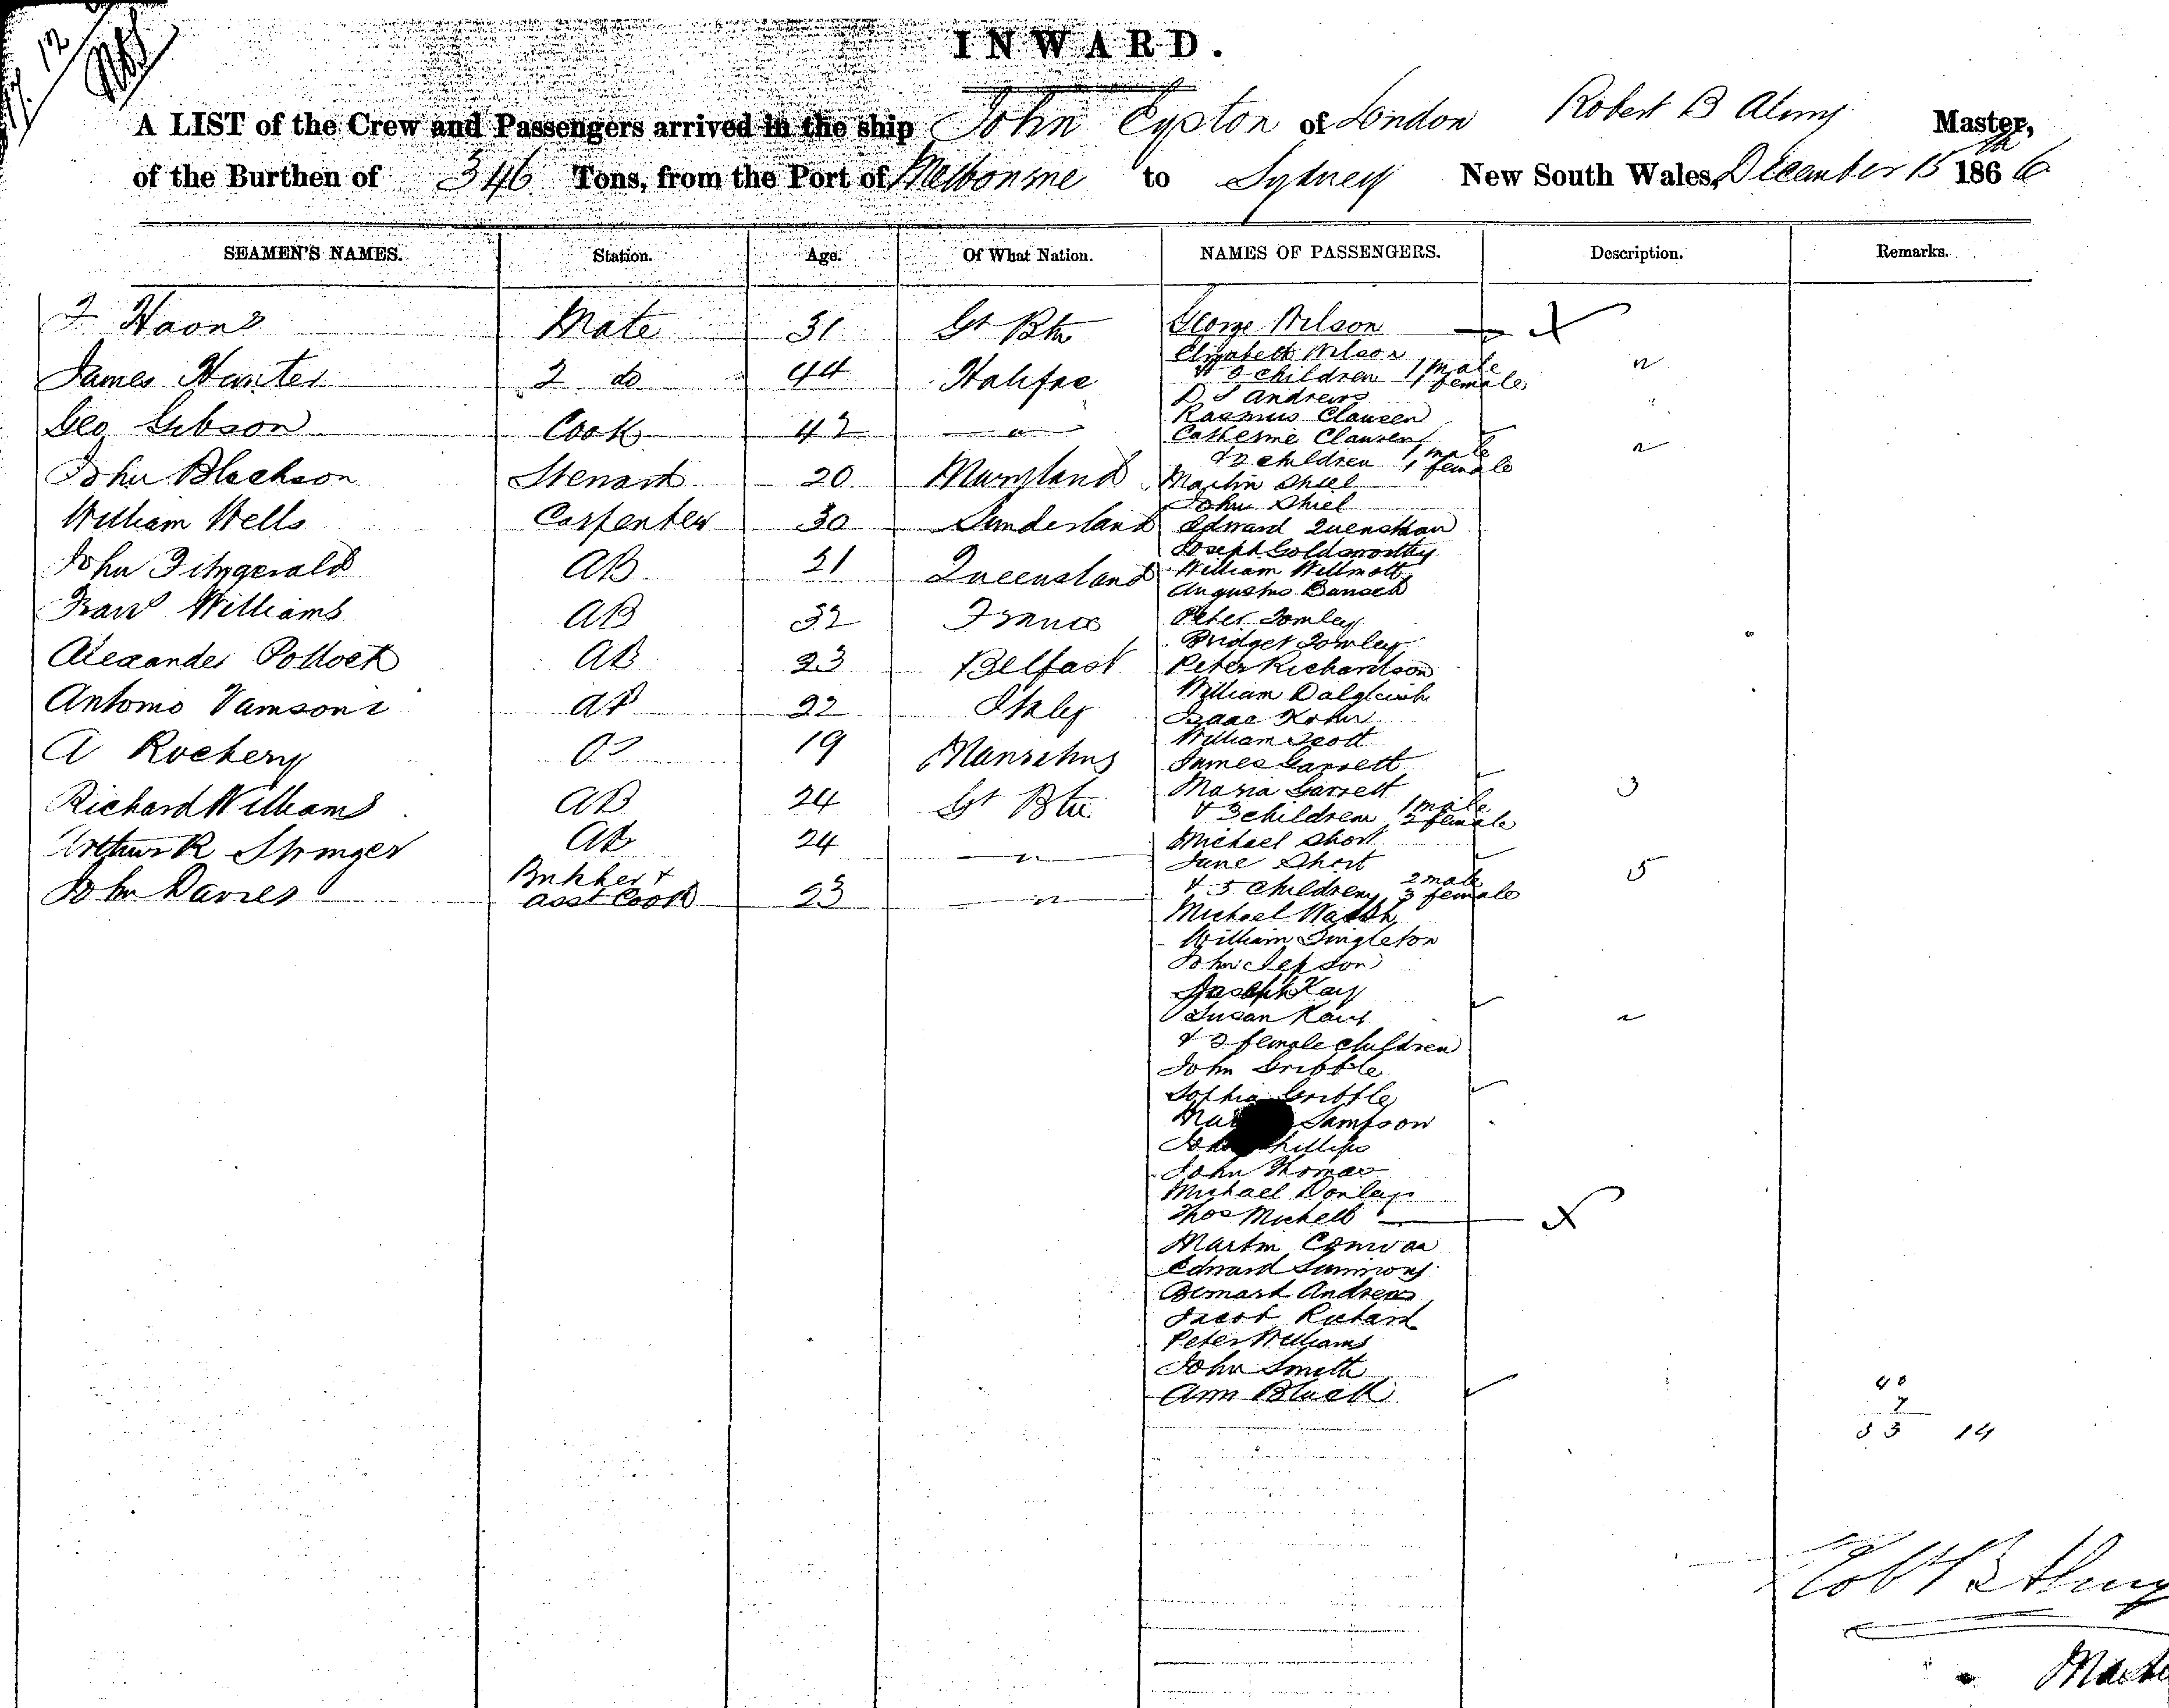 INWARD.
A LIST of the Crew and Passengers arrived in the ship John Eyston of London Robert B Almy Master,
of the Burthen of 346 Tons, from the Port of Melbourne to Sydney New South Wales, December 15th 1866
SEAMEN'S NAMES. Station. Age. Of What Nation. NAMES OF PASSENGERS. Description. Remarks.
Mate 31 Gt Btn
James Hunter 2 do 44 Halifax
Geo Gibson Cook 42 "
John Blackson Steward 20 Maryland
William Wells Carpenter 30 Sunderland
John Fitzgerald AB 21 Queensland
Williams AB 32 France
Alexander Pollock AB 23 Belfast
Antonio AB 22 Italy
A Rochery OS 19 Mauritius
Richard Williams AB 24 Gt Btn
Arthur R Springer AB 24 "
John Davies Butcher & asst Cook 23 "
George Wilson
Elizabeth Wilson
& 2 children 1 male 1 female 2
D S Andrews
Rasmus Clausen
Catherine Clausen
& 2 children 1 male 1 female 2
Martin Shiel
John Shiel
Edward
Joseph Goldsworthy
William Willmott
Augustus
Peter Towley
Bridget Towley
Peter Richardson
William Dalgleish
Isaac Kohn
William Scott
James Garrett
Maria Garrett 3
& 3 children 1 male 2 female
Michael Short
Jane Short 5
& 5 children 2 male 3 female
Michael Walsh
William Singleton
John Jepson
Joseph Kay
Susan Kay 2
& 2 female children
John Gribble
Sophia Gribble
Sampson
John Phillips
John Thomas
Michael Donley
Thos Michell
Martin
Edward Simmons
Bernard Andrews
Jacob Richard
Peter Williams
John Smith
Ann Black
7
53 14
Robt B Almy